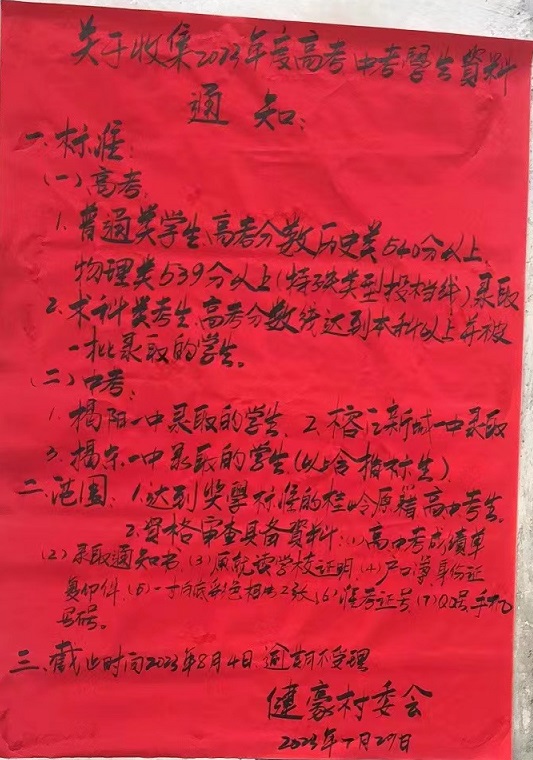 关于收集2023年度高考中考學生資料
通知:
一.标准:
(一)高考
1.普通类学生,高考分数历史类540分以上,
物理类539分以上(特殊类型投档线)录取
2.术科类考生,高考分数线达到本科以上并被
一批录取的学生。
(二)中考:
1.揭阳一中录取的学生 2.榕江新城一中录取
3.揭东一中录取的学生(
二.范围:1.达到奖學标准的桂岭原籍高中考生。
2.资格审查具备資料:(1)高中考成績单
(2)录取通知书,(3)原就读学校证明,(4)户口簿身份证
复印件,(5)一寸白底彩色相片2张,(6)准考证号,(7)QQ号,手机
号码。
三.截止时间2023年8月4日,逾期不受理
健豪村委会
2023年7月29日